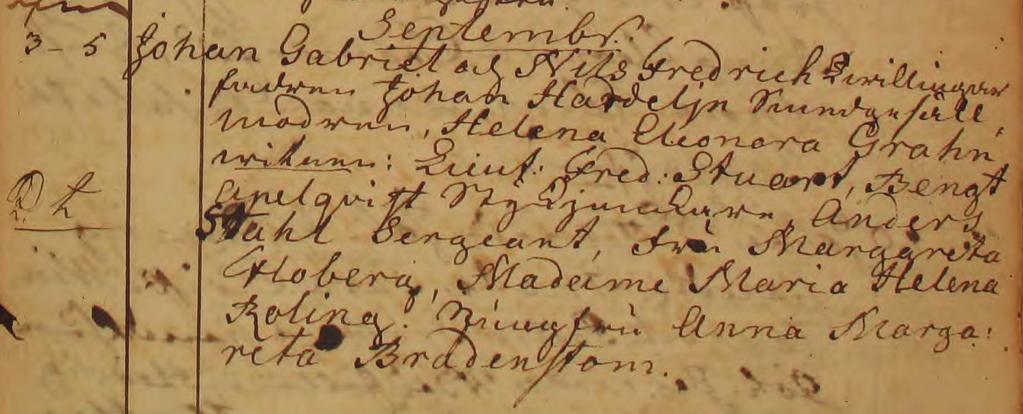 Septembr.
3 - 5 Johan Gabriel och Nils Fredrich Twillingar
fadren Johan Hardelin Smedgesäll,
modren, Helena Eleonora Grahn
witnen: Lieut: Fred: Stuart, Bengt
Apelquist Styckjunkare, Anders
Stahl Sergeant, fru Margareta
Moberg, Madame Maria Helena
Roling. Jungfru Anna Marga:
reta Bradenstom.